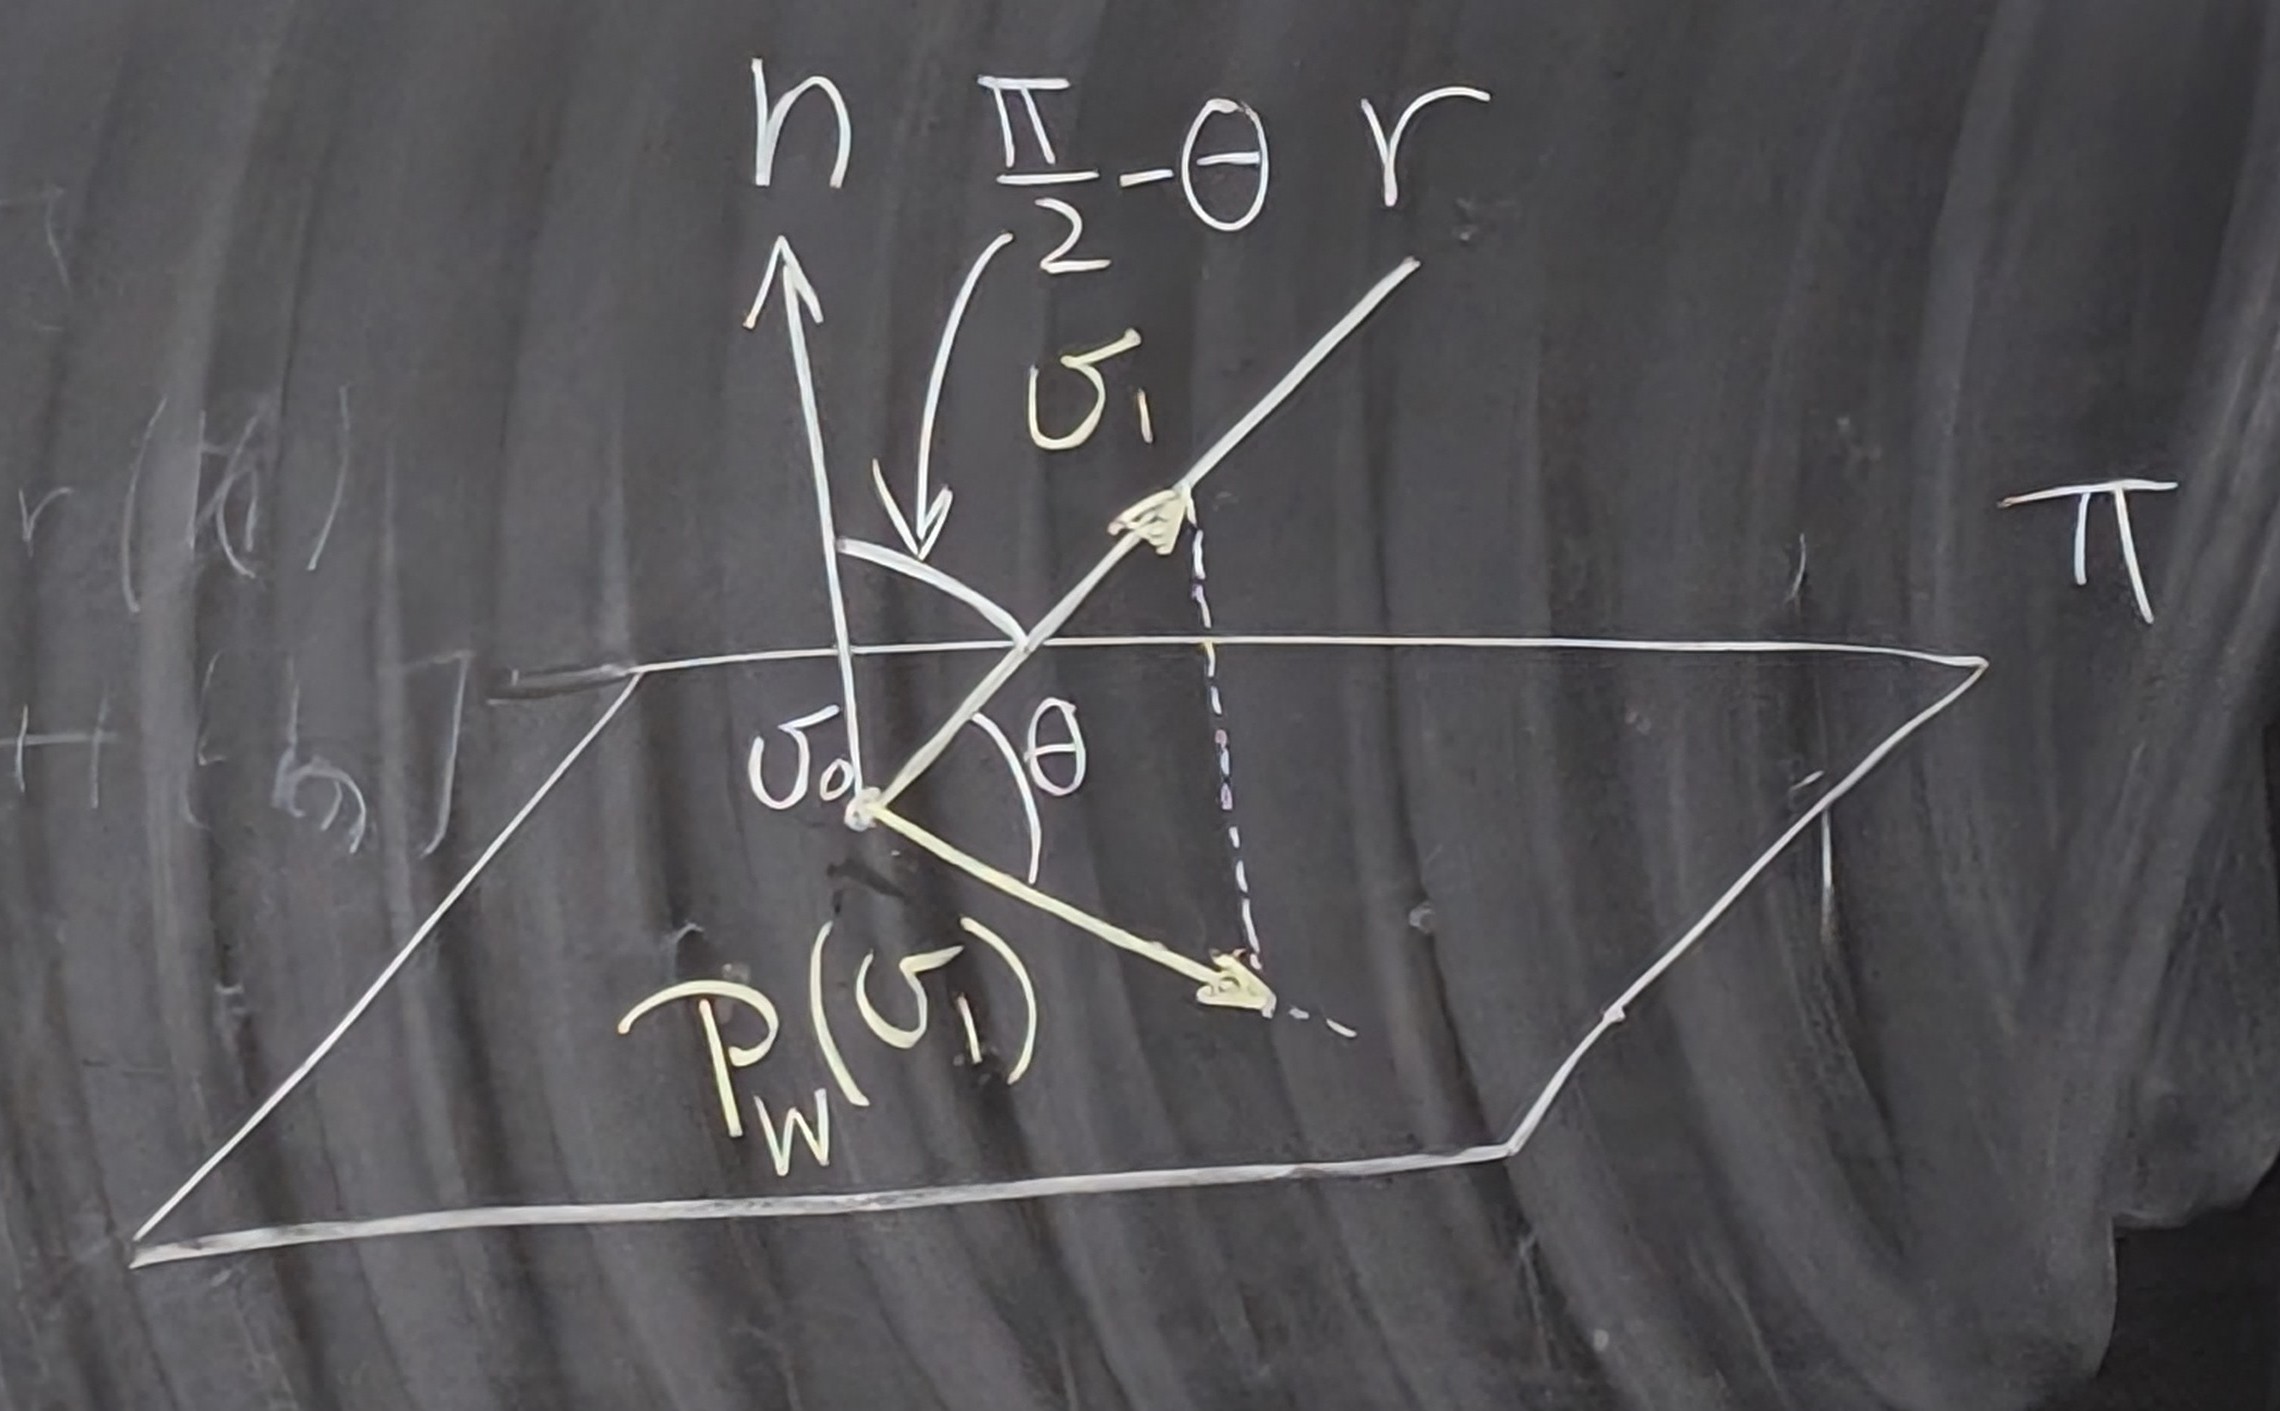 n π/2 - θ r
v₁
π
v₀ θ
P_W(v₁)